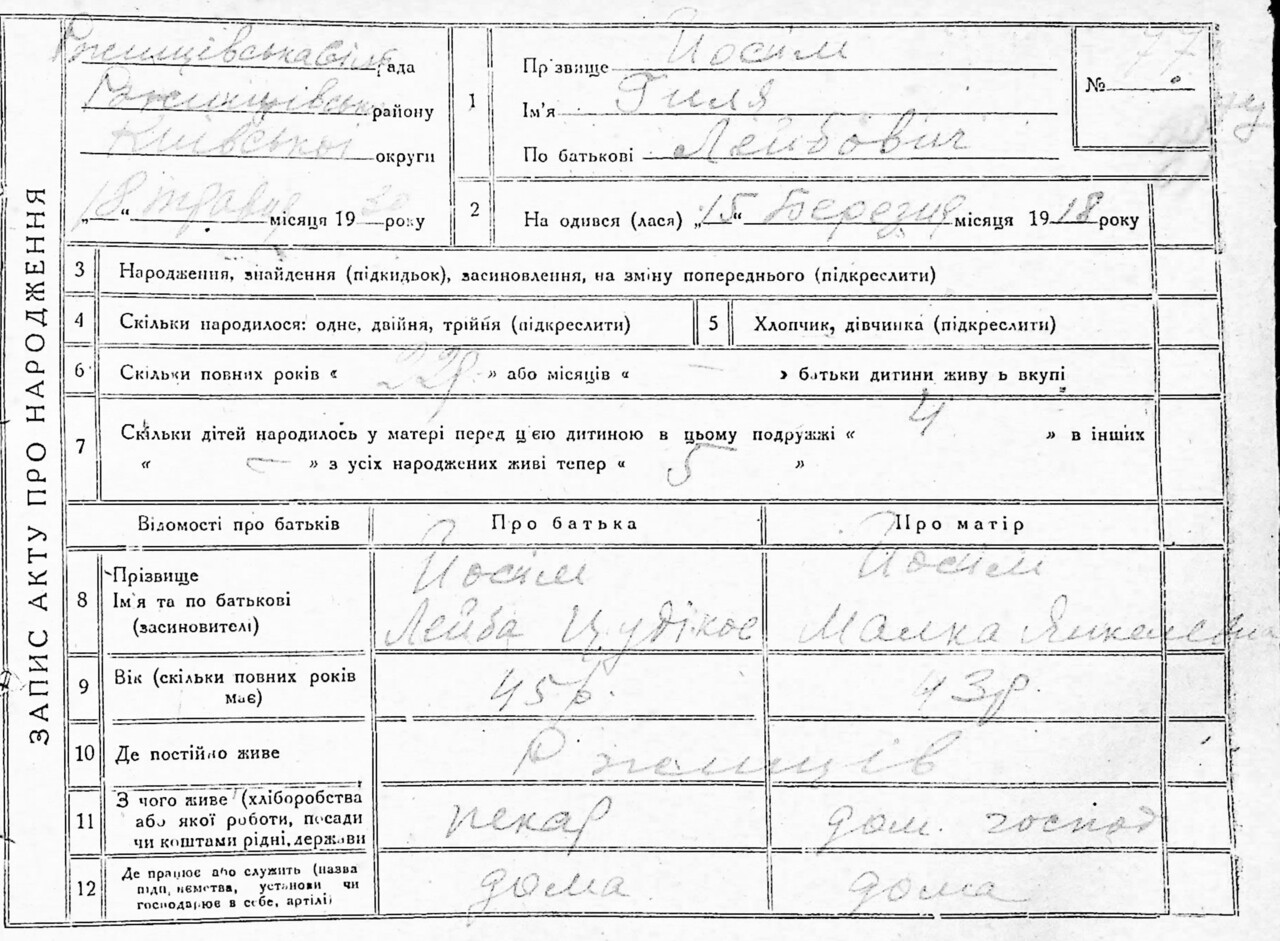 ЗАПИС АКТУ ПРО НАРОДЖЕННЯ
рада
району
Київської округи
„18“ травня місяця 1930 року
1
Пр звище Йосім
Ім'я Гиля
По батькові Лейбович
№ 77
2
На одився (лася) „15“ Березня місяця 1918 року
3
Народження, знайдення (підкидьок), засиновлення, на зміну попереднього (підкреслити)
4
Скільки народилося: одне, двійня, трійня (підкреслити)
5
Хлопчик, дівчинка (підкреслити)
6
Скільки повних років « 22р. » або місяців « — » батьки дитини живу ь вкупі
7
Скільки дітей народилось у матері перед цією дитиною в цьому подружжі « 4 » в інших
« — » з усіх народжених живі тепер « 5 »
Відомості про батьків
Про батька
Про матір
8
Прізвище
Ім'я та по батькові
(засиновителі)
Йосім
Лейба
Йосім
Малка
9
Вік (скільки повних років
має)
45р.
43р.
10
Де постійно живе
11
З чого живе (хліборобства
або якої роботи, посади
чи коштами рідні, держави
пекар
дом. господ
12
Де працює або служить (назва
підп, иємства, установи чи
господарює в себе, артілі)
дома
дома